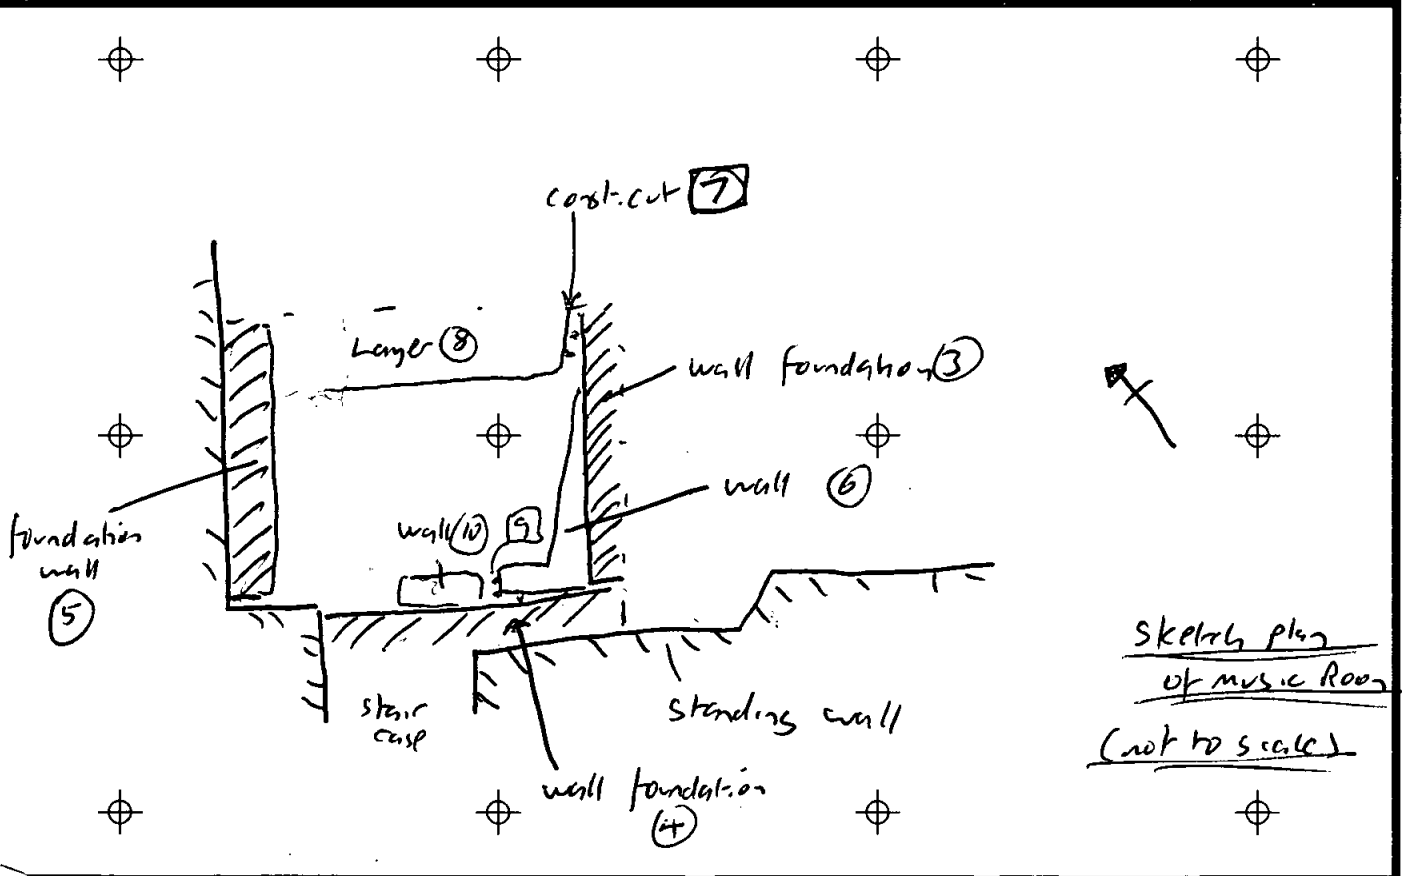 const. cut 7
Layer 8
wall foundation 3
wall 6
wall 10
9
foundation
wall
5
stair
case
standing wall
wall foundation
4
Sketch plan
of Music Room
(not to scale)